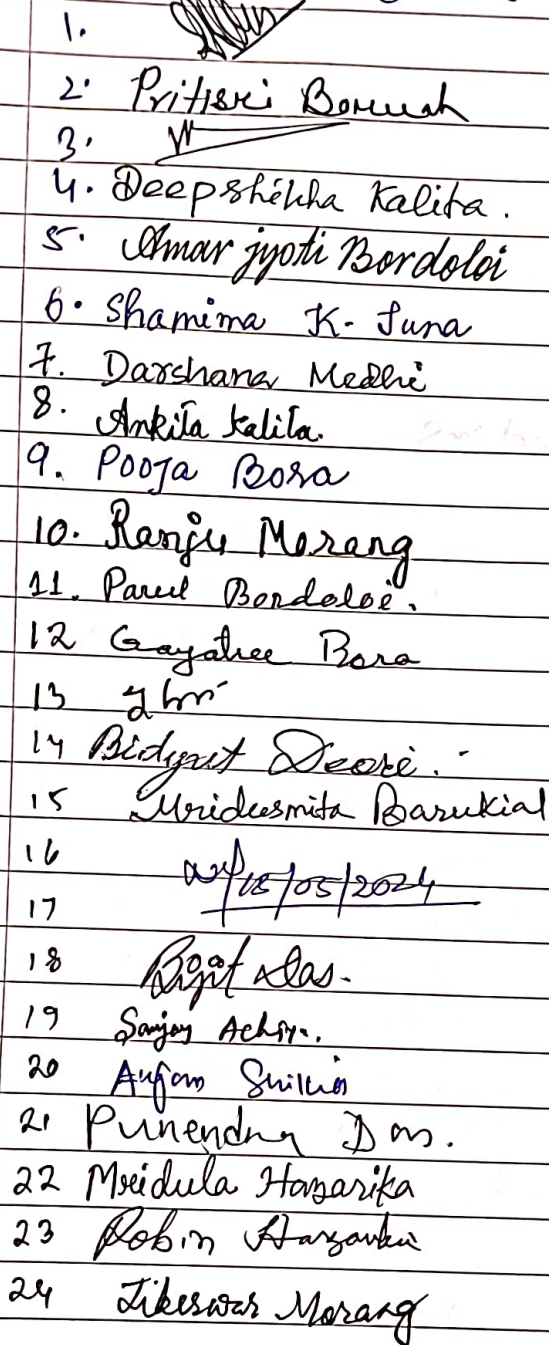 1.
2. Pritisri Boruah
3.
4. Deepshikha Kalita.
5. Amar jyoti Bordoloi
6. Shamima K-
7. Darshana Medhi
8. Ankita Kalita.
9. Pooja Bora
10. Ranju Morang
11. Parul Bordoloi.
12 Gayatree Bora
13
14 Bidyut Deori.
15 Mridusmita Barukial
16
15/05/2024
17
18 Bijit Das.
19 Sanjoy
20
21 Punendra Das.
22 Mridula Hazarika
23 Robin Hazarika
24 Tikeswar Morang